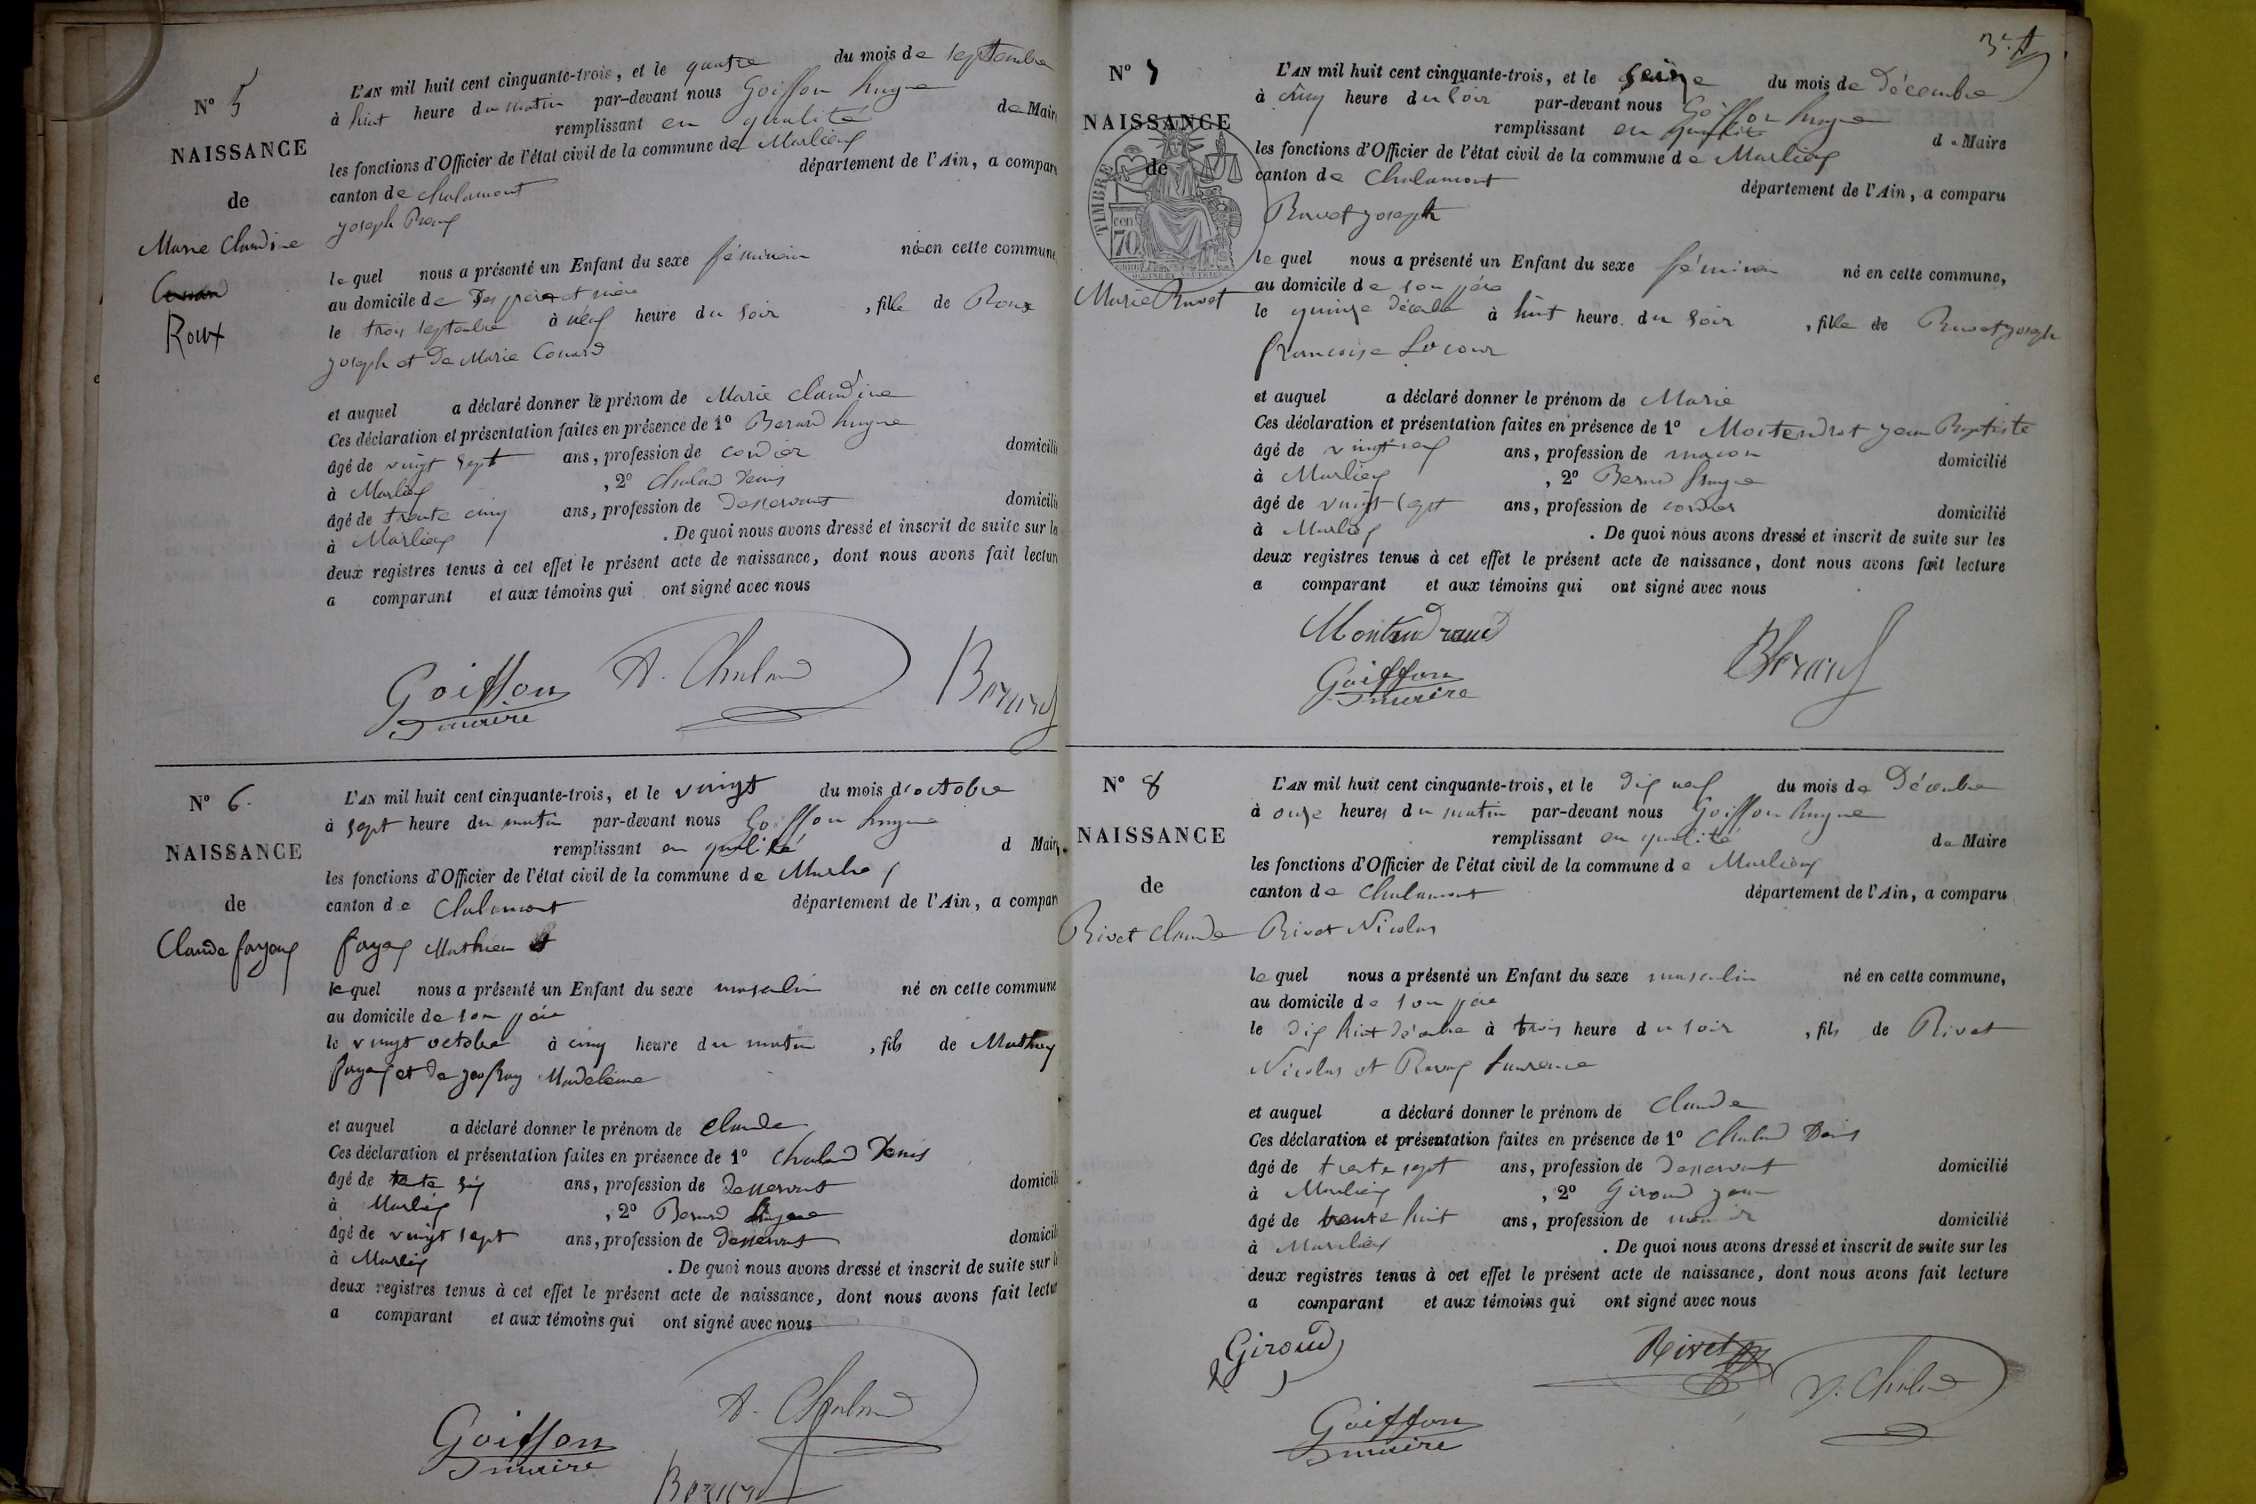 N° 5
NAISSANCE
de
Marie Claudine
Conard
Roux
L'AN mil huit cent cinquante-trois, et le quatre du mois de septembre
à huit heure du matin par-devant nous Goiffon hugue
remplissant en qualité de Maire
les fonctions d'Officier de l'état civil de la commune de Marlieux
canton de Chalamont département de l'Ain, a comparu
joseph Roux
le quel nous a présenté un Enfant du sexe féminin née en cette commune,
au domicile de Des père et mère
le trois septembre à neuf heure du soir, fille de Roux
joseph et De Marie Conard
et auquel a déclaré donner le prénom de Marie Claudine
Ces déclaration et présentation faites en présence de 1° Berard hugue
âgé de vingt sept ans, profession de cordier domicilié
à Marlieux, 2° Chaland Denis
âgé de trente cinq ans, profession de Desservant domicilié
à Marlieux. De quoi nous avons dressé et inscrit de suite sur les
deux registres tenus à cet effet le présent acte de naissance, dont nous avons fait lecture
a comparant et aux témoins qui ont signé avec nous
Goiffon
maire
D. Chaland
Berard
N° 6
NAISSANCE
de
Claude fayeux
L'AN mil huit cent cinquante-trois, et le vingt du mois d'octobre
à sept heure du matin par-devant nous Goiffon hugue
remplissant en qualité d Maire
les fonctions d'Officier de l'état civil de la commune de Marlieux
canton de Chalamont département de l'Ain, a comparu
Mathieu
le quel nous a présenté un Enfant du sexe masculin né en cette commune
au domicile de son père
le vingt octobre à cinq heure du matin, fils de Mathieu
et de Madeleine
et auquel a déclaré donner le prénom de Claude
Ces déclaration et présentation faites en présence de 1° Chaland Denis
âgé de trente six ans, profession de Desservant domicilié
à Marlieux, 2° Berard hugue
âgé de vingt sept ans, profession de Desservant domicilié
à Marlieux. De quoi nous avons dressé et inscrit de suite sur les
deux registres tenus à cet effet le présent acte de naissance, dont nous avons fait lecture
a comparant et aux témoins qui ont signé avec nous
D. Chaland
Goiffon
maire
Berard
N° 7
NAISSANCE
de
TIMBRE
70
Marie Ruvet
L'AN mil huit cent cinquante-trois, et le seize du mois de Décembre
à cinq heure du soir par-devant nous Goiffon hugue
remplissant en qualité de Maire
les fonctions d'Officier de l'état civil de la commune de Marlieux
canton de Chalamont département de l'Ain, a comparu
Ruvet joseph
le quel nous a présenté un Enfant du sexe féminin né en cette commune,
au domicile de son père
le quinze décembre à huit heure du soir, fille de Ruvet joseph
françoise
et auquel a déclaré donner le prénom de Marie
Ces déclaration et présentation faites en présence de 1° jean Baptiste
âgé de vingt neuf ans, profession de maçon domicilié
à Marlieux, 2° Berard hugue
âgé de vingt sept ans, profession de cordier domicilié
à Marlieux. De quoi nous avons dressé et inscrit de suite sur les
deux registres tenus à cet effet le présent acte de naissance, dont nous avons fait lecture
a comparant et aux témoins qui ont signé avec nous
Goiffon
maire
Berard
N° 8
NAISSANCE
de
Rivet Claude
L'AN mil huit cent cinquante-trois, et le dix neuf du mois de Décembre
à onze heures du matin par-devant nous Goiffon hugue
remplissant en qualité de Maire
les fonctions d'Officier de l'état civil de la commune de Marlieux
canton de Chalamont département de l'Ain, a comparu
Rivet Nicolas
le quel nous a présenté un Enfant du sexe masculin né en cette commune,
au domicile de son père
le dix huit décembre à trois heure du soir, fils de Rivet
Nicolas et Laurence
et auquel a déclaré donner le prénom de Claude
Ces déclaration et présentation faites en présence de 1° Chaland Denis
âgé de trente sept ans, profession de desservant domicilié
à Marlieux, 2° Giroud jean
âgé de trente huit ans, profession de domicilié
à Marlieux. De quoi nous avons dressé et inscrit de suite sur les
deux registres tenus à cet effet le présent acte de naissance, dont nous avons fait lecture
a comparant et aux témoins qui ont signé avec nous
Giroud
Rivet
D. Chaland
Goiffon
maire